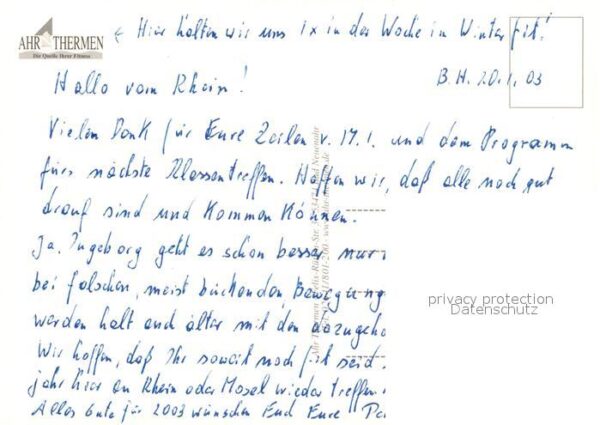 AHR THERMEN
Die Quelle Ihrer Fitness
← Hier halten wir uns 1x in der Woche im Winter fit!
Hallo vom Rhein!
B.H. 20.1.03
Vielen Dank für Eure Zeilen v. 17.1. und dem Programm
fürs nächste Klassentreffen. Hoffen wir, daß alle noch gut
drauf sind und kommen können.
Ja, Ingeborg geht es schon besser nur
bei falschen, meist bückenden Bewegung
werden halt auch älter mit den dazugehö
Wir hoffen, daß Ihr soweit noch fit seid.
jahr hier an Rhein oder Mosel wieder treffen
Alles Gute für 2003 wünschen Euch Eure
privacy protection
Datenschutz